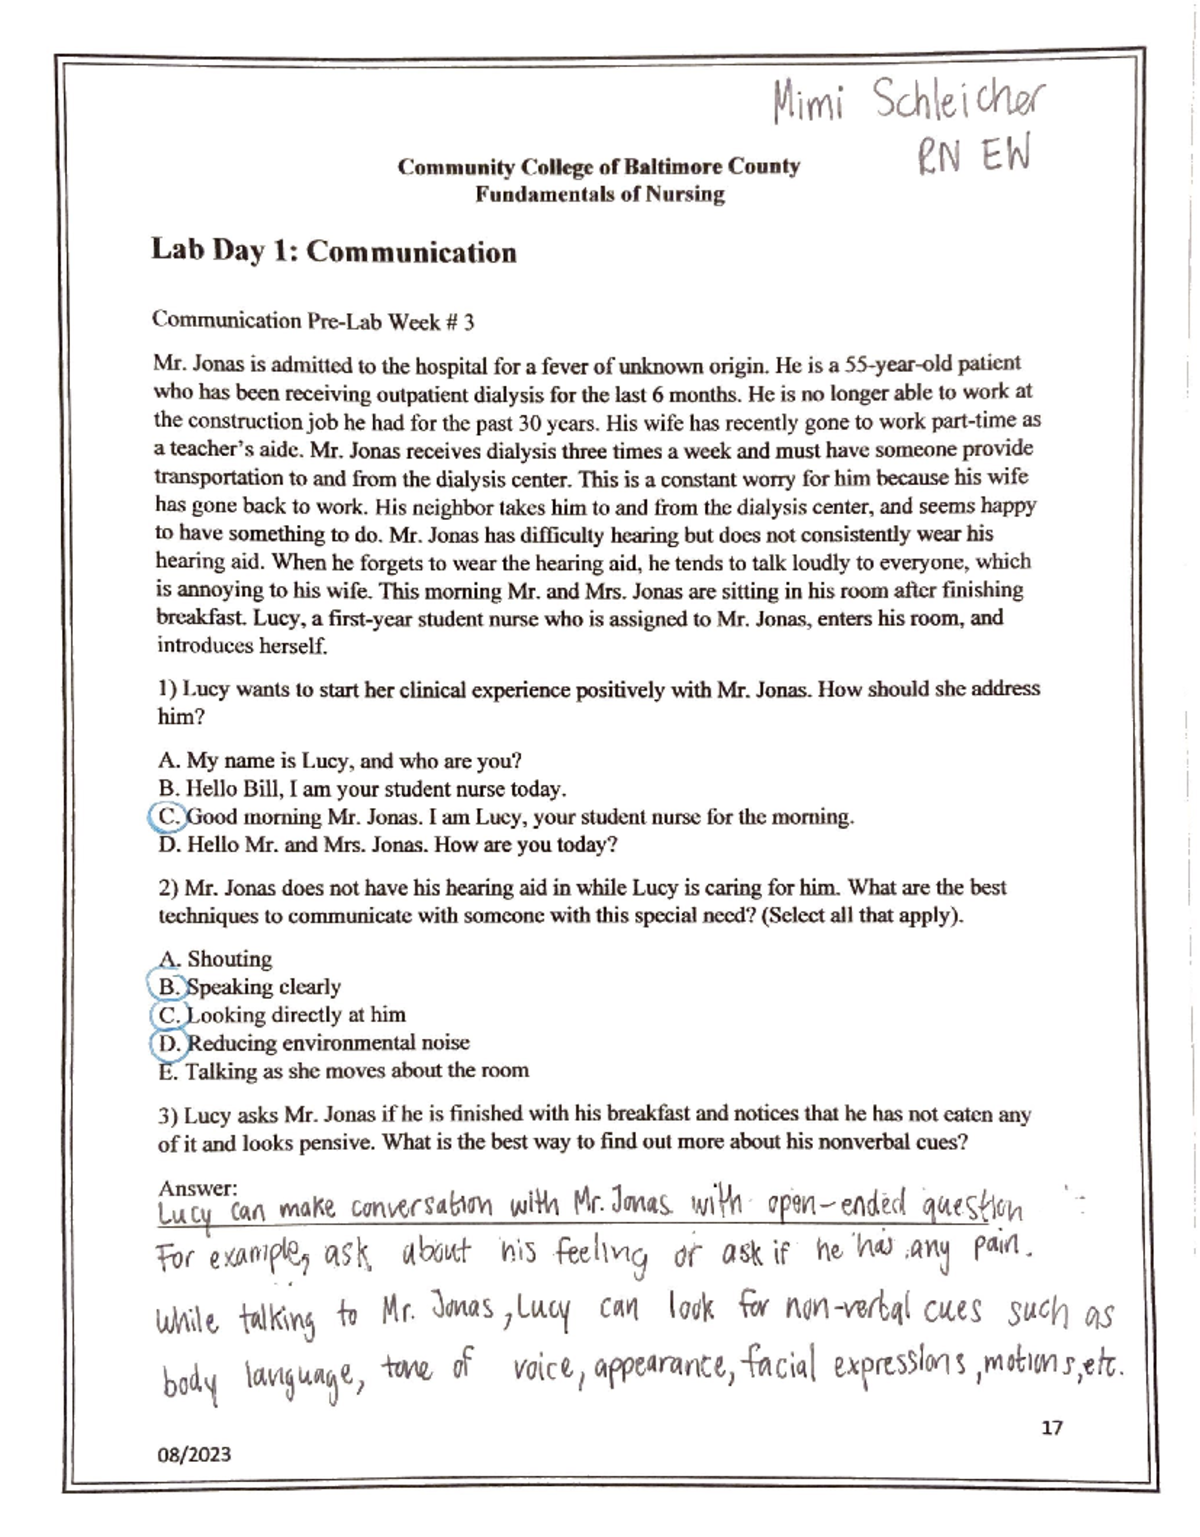 Mimi Schleicher
RN EW
Community College of Baltimore County
Fundamentals of Nursing
Lab Day 1: Communication
Communication Pre-Lab Week # 3
Mr. Jonas is admitted to the hospital for a fever of unknown origin. He is a 55-year-old patient
who has been receiving outpatient dialysis for the last 6 months. He is no longer able to work at
the construction job he had for the past 30 years. His wife has recently gone to work part-time as
a teacher's aide. Mr. Jonas receives dialysis three times a week and must have someone provide
transportation to and from the dialysis center. This is a constant worry for him because his wife
has gone back to work. His neighbor takes him to and from the dialysis center, and seems happy
to have something to do. Mr. Jonas has difficulty hearing but does not consistently wear his
hearing aid. When he forgets to wear the hearing aid, he tends to talk loudly to everyone, which
is annoying to his wife. This morning Mr. and Mrs. Jonas are sitting in his room after finishing
breakfast. Lucy, a first-year student nurse who is assigned to Mr. Jonas, enters his room, and
introduces herself.
1) Lucy wants to start her clinical experience positively with Mr. Jonas. How should she address
him?
A. My name is Lucy, and who are you?
B. Hello Bill, I am your student nurse today.
C. Good morning Mr. Jonas. I am Lucy, your student nurse for the morning.
D. Hello Mr. and Mrs. Jonas. How are you today?
2) Mr. Jonas does not have his hearing aid in while Lucy is caring for him. What are the best
techniques to communicate with someone with this special need? (Select all that apply).
A. Shouting
B. Speaking clearly
C. Looking directly at him
D. Reducing environmental noise
E. Talking as she moves about the room
3) Lucy asks Mr. Jonas if he is finished with his breakfast and notices that he has not eaten any
of it and looks pensive. What is the best way to find out more about his nonverbal cues?
Answer:
Lucy can make conversation with Mr. Jonas with open-ended question
For example, ask about his feeling or ask if he has any pain.
While talking to Mr. Jonas, Lucy can look for non-verbal cues such as
body language, tone of voice, appearance, facial expressions, motions, etc.
17
08/2023